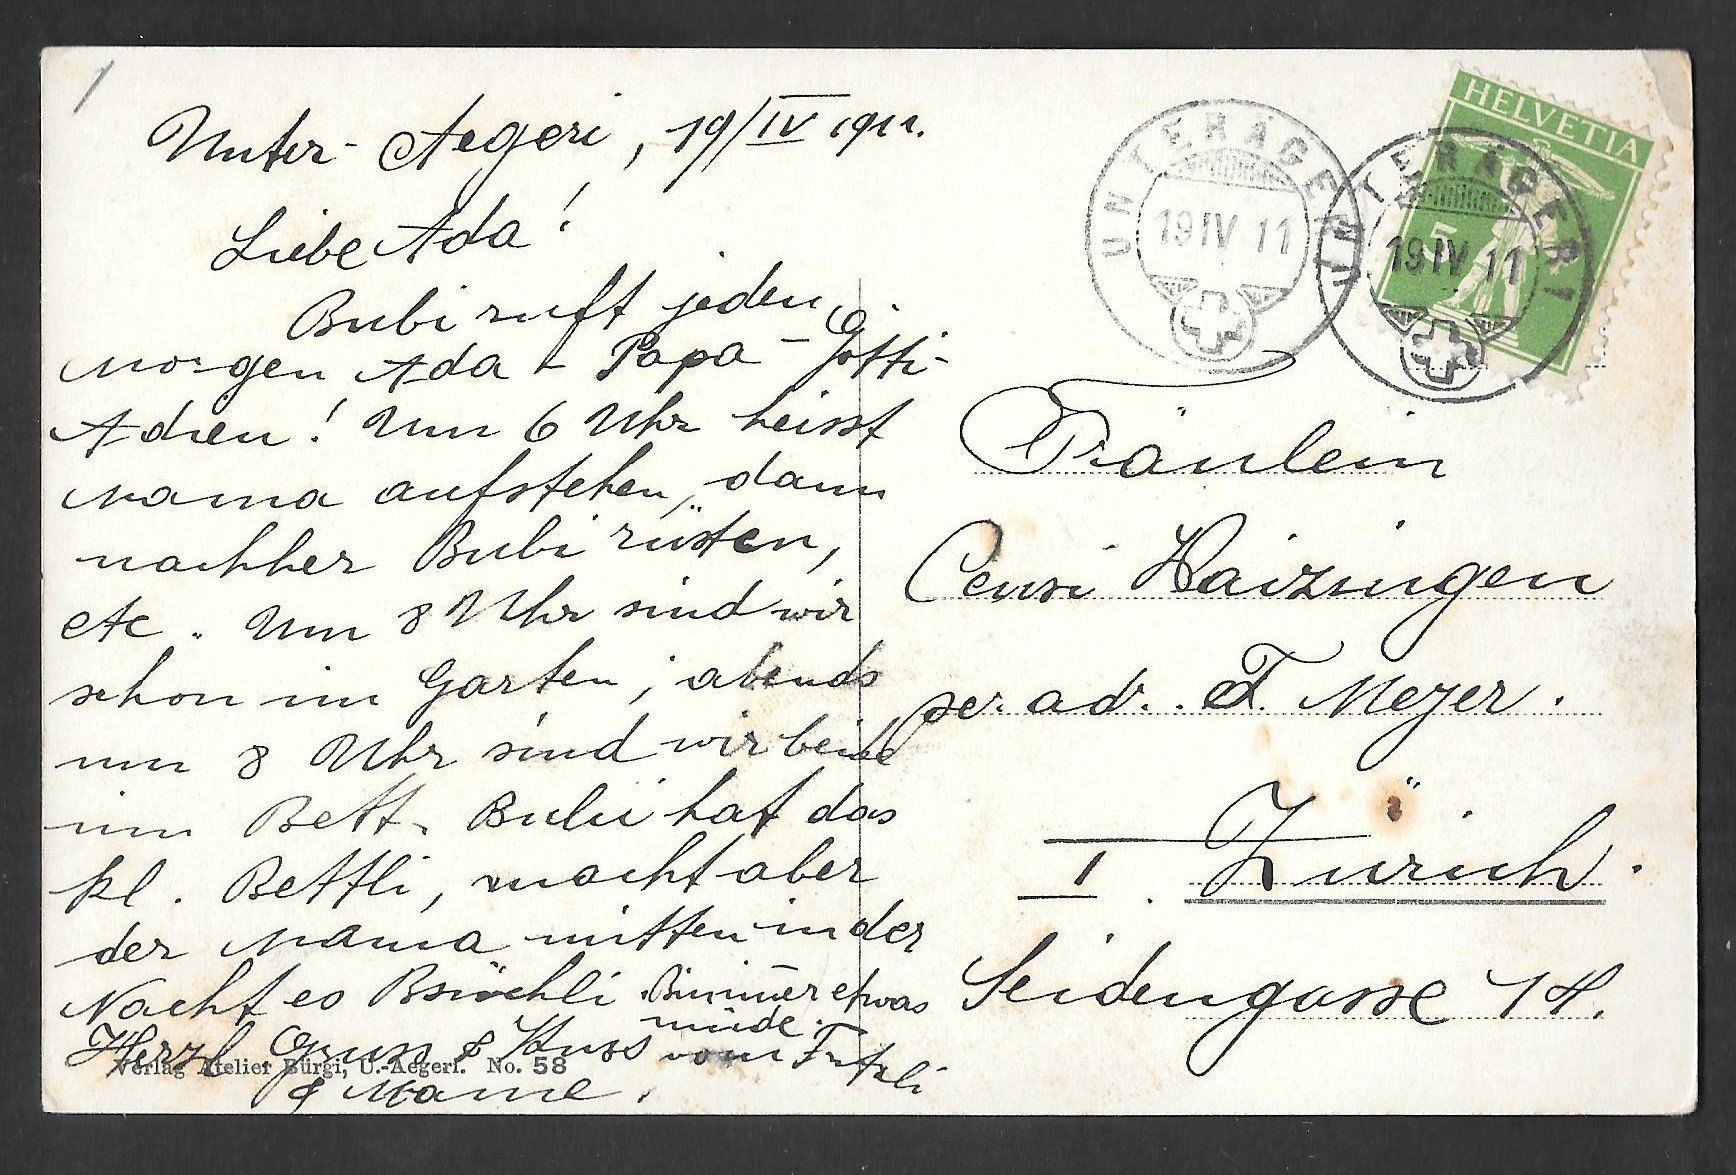 1
Unter-Aegeri, 19/IV 1911.
Liebe Ada!
Bubi ruft jeden
Morgen Ada - Papa - Götti-
Adien! Um 6 Uhr heisst
Mama aufstehen, dann
nachher Bubi rüsten,
etc. Um 8 Uhr sind wir
schon im Garten, abends
um 8 Uhr sind wir beide
im Bett. Bubi hat das
kl. Bettli, macht aber
der Mama mitten in der
Nacht es Bsüchli. Bin immer etwas
müde.
Herzl Gruss & Kuss vom Fritzli
& Mame.
Verlag Atelier Bürgi, U.-Aegeri. No. 58
UNTERÄGERI
19 IV 11
UNTERÄGERI
19 IV 11
HELVETIA
5
Fräulein
Censi Waizingen
per. ad. F. Meyer.
I. Zürich.
Seidengasse 14.